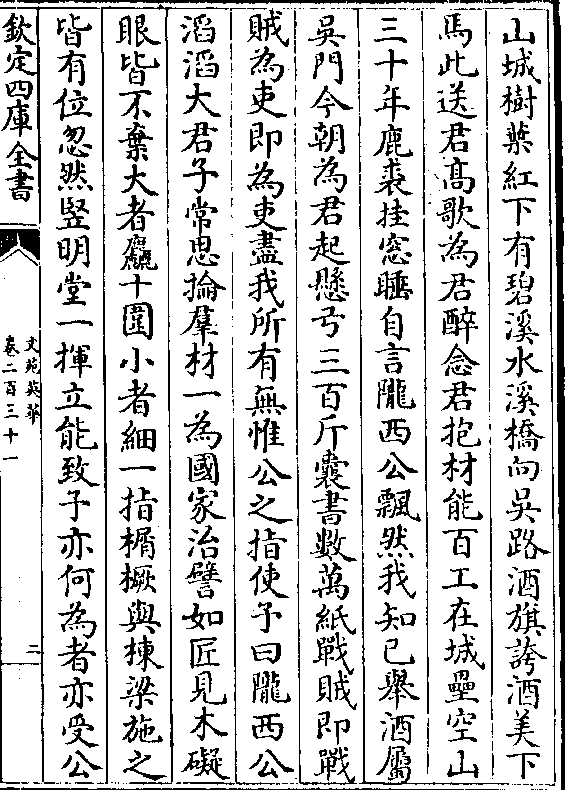 山城樹葉紅下有碧溪水溪橋向吳路酒旗誇酒美下
馬此送君髙歌為君醉念君抱材能百工在城壘空山
三十年鹿裘挂窓睡自言隴西公飄然我知已舉酒屬
吳門今朝為君起懸弓三百斤囊書數萬紙戰賊即戰
賊為吏即為吏盡我所有無惟公之指使予曰隴西公
滔滔大君子常思掄羣材一為國家治譬如匠見木礙
眼皆不棄大者麤十圍小者細一指楯橛與棟梁施之
皆有位忽然竪明堂一揮立能致予亦何為者亦受公
欽定四庫全書
文苑英華
卷二百三十一
二